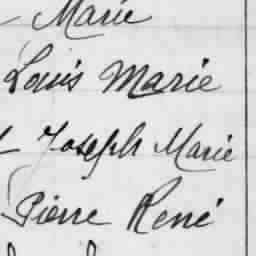 Marie
Louis Marie
Joseph Marie
Pierre René